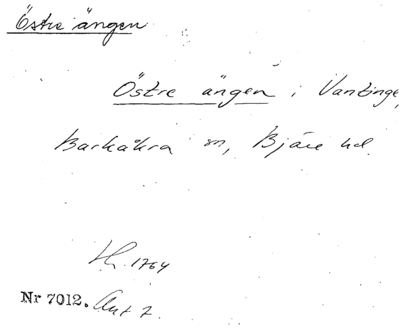 Östre ängen
Östre ängen i Vantinge,
Barkåkra sn, Bjäre hd.
1764
Nr 7012. Akt 7.